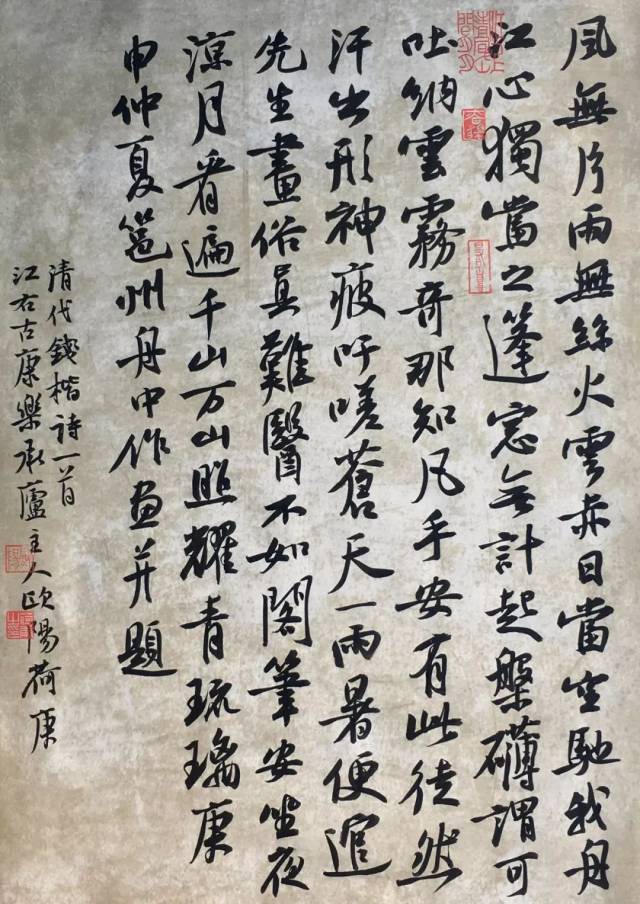 風無片雨無絲火雲赤日當空馳我舟
江心獨當之篷窓無計起槃礴謂可
吐納雲霧奇那知凡手安有此徒然
汗出形神疲吁嗟蒼天一雨暑便退
先生畫俗真難醫不如閣筆安坐夜
涼月看遍千山万山照耀青琉璃庚
申仲夏邕州舟中作画并題
清代錢楷詩一首
江右古康樂承廬主人歐陽荷庚